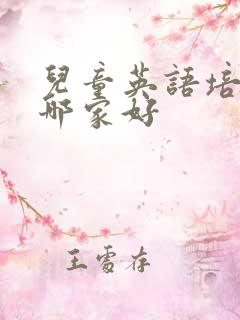 兒童英語培
哪家好
王雪存